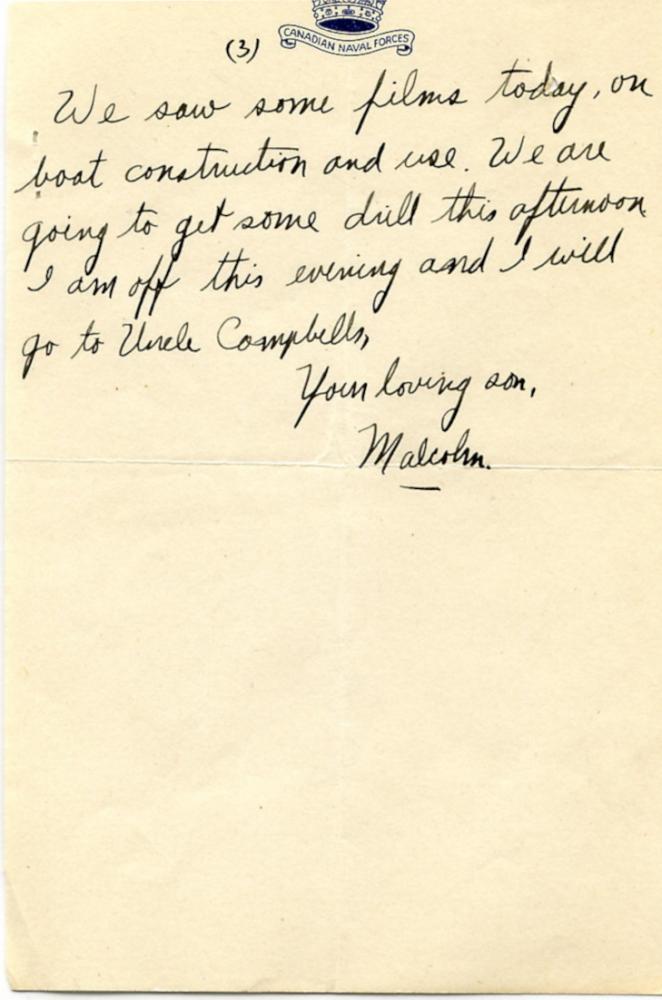 CANADIAN NAVAL FORCES
(3)
We saw some films today, on
boat construction and use. We are
going to get some drill this afternoon
I am off this evening and I will
go to Uncle Campbells,
Your loving son,
Malcolm.